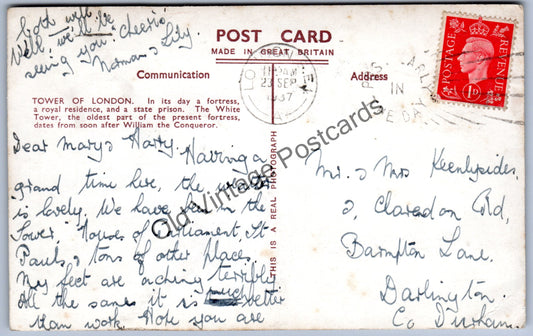 both well.
Well, we'll be
seeing you "Cheerio"
Norman & Lily.
POST CARD
MADE IN GREAT BRITAIN
Communication
Address
TOWER OF LONDON. In its day a fortress,
a royal residence, and a state prison. The White
Tower, the oldest part of the present fortress,
dates from soon after William the Conqueror.
LONDON
23 SEP
1937
POST EARLY
IN
THE DAY
POSTAGE
REVENUE
1D
Dear Mary & Harry. Having a
grand time here, the weather
is lovely. We have been in the
Tower, Houses of Parliament, St
Pauls, & tons of other places.
My feet are aching terribly
All the same it is much better
than work. Hope you are
THIS IS A REAL PHOTOGRAPH
Mr & Mrs Keenlysides.
2, Claredon Rd,
Barmpton Lane.
Darlington.
Co Durham.
Old Vintage Postcards